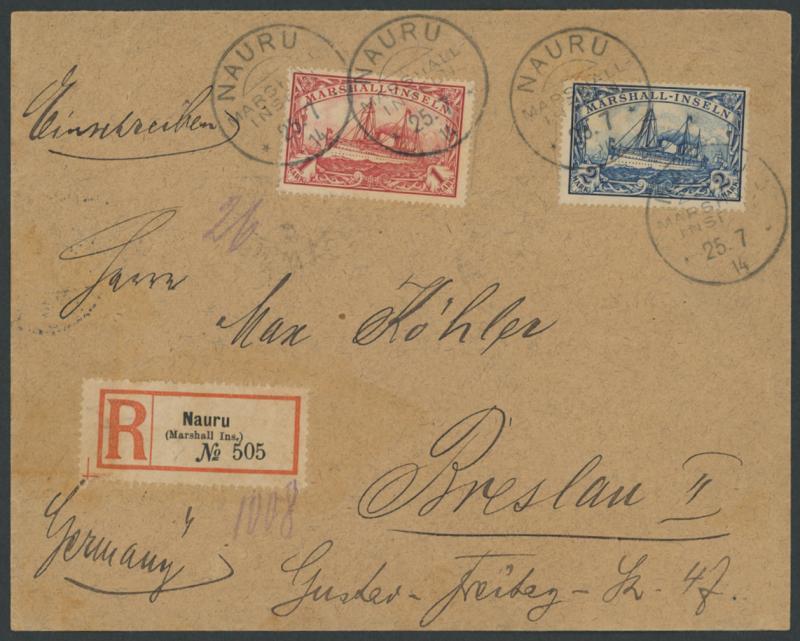 NAURU
MARSHALL-INSELN
25.7
14
NAURU
MARSHALL-INSELN
25.7
14
NAURU
MARSHALL-INSELN
25.7
MARSHALL-INSELN
1 MARK 1 MARK
MARSHALL-INSELN
2 MARK 2 MARK
MARSHALL-
INSELN
25.7
14
Einschreiben
26
Herrn
Max Köhler
R
Nauru
(Marshall Ins.)
№ 505
Breslau II
1008
Germany
Gustav-Freitag-Str. 47.